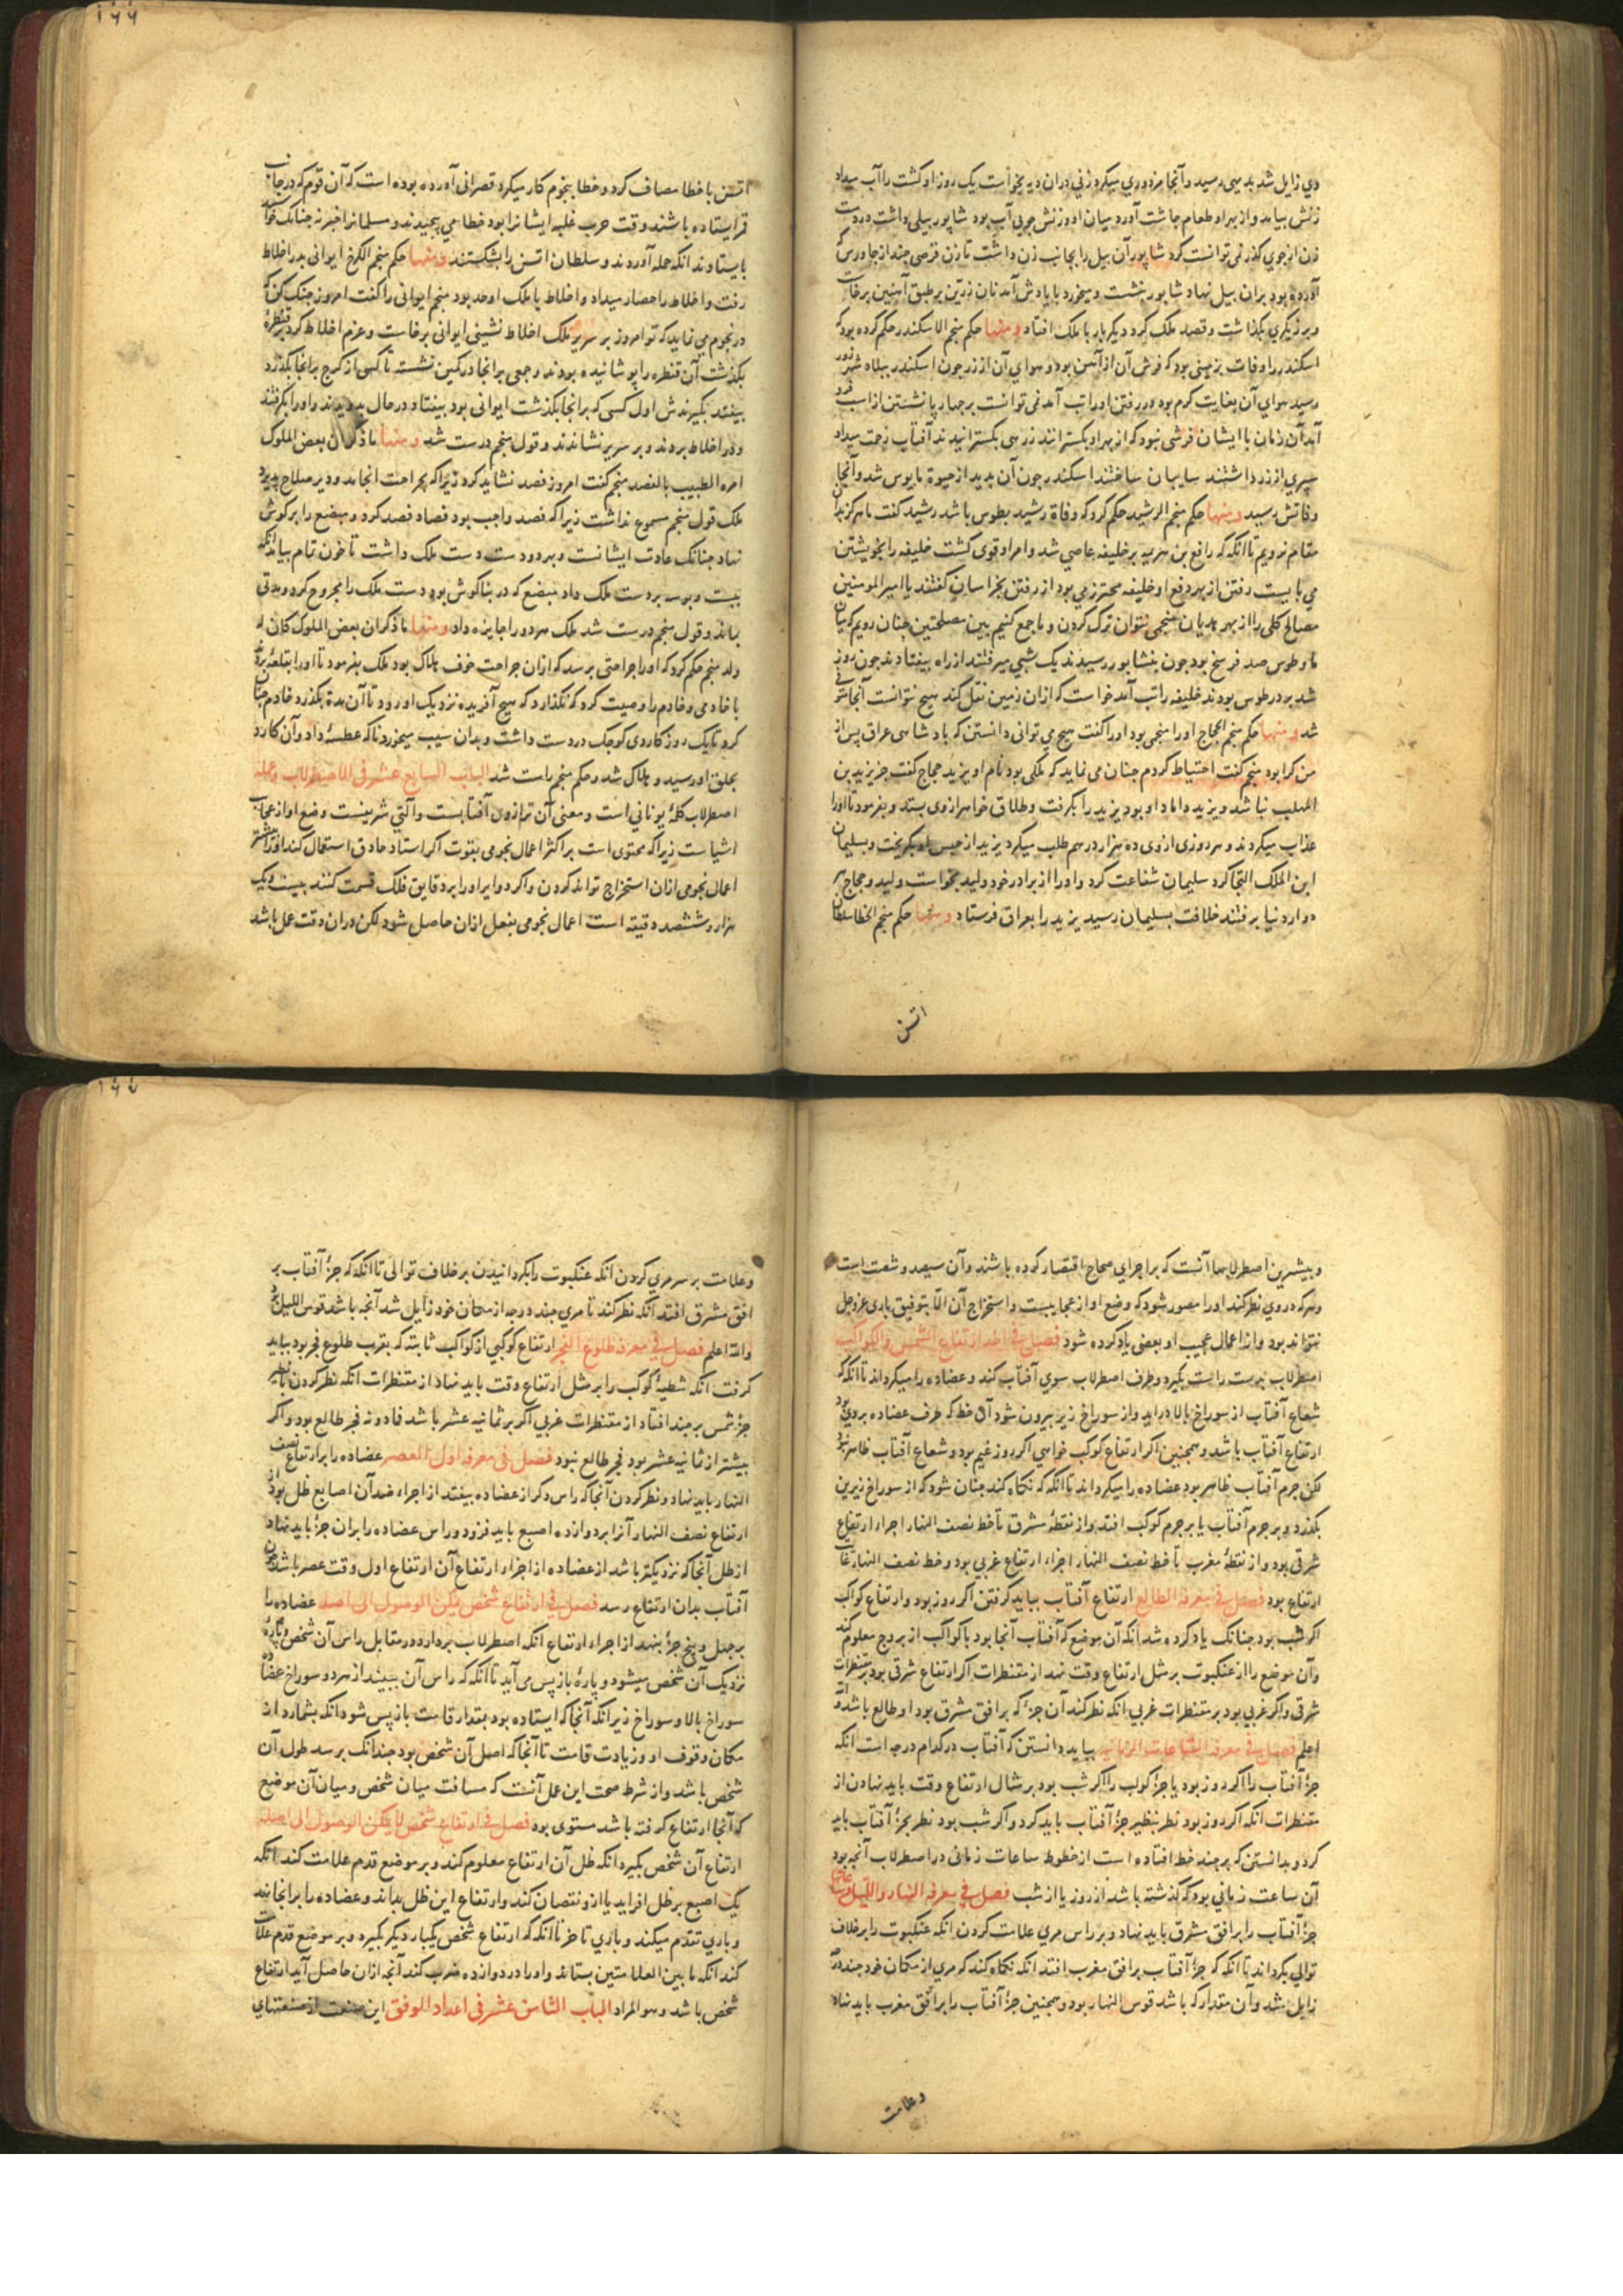 وی زایل شد بدیهی رسید و آنجا مزدوری میکرد زنی دران دیه بخواست یک روز او کشت را آب میداد
زنش بیامد و از بهر او طعام چاشت آورد میان او و زنش جوبی آب بود شاپور بیلی داشت در دست
زن از جوی کذر نمی توانست کرد شاپور آن بیل را بجانب زن داشت تا زن قرصی چند از جاورس که
آورده بود بران بیل نهاد شاپور بنشست و میخورد با یادش آمد نان زرین بر طبق آهنین برخاست
و برزیکری بکذاشت و قصد ملک کرد دیکر بار با ملک افتاد ومنها حکم منجم الاسکندر حکم کرده بود که
اسکندر را وفات بزمینی بود که فرش آن از آهن بود و هوای آن از زر جون اسکندر ببلاد شهرزور
رسید هوای آن بغایت کرم بود در رفتن او را تب آمد نمی توانست بر چهارپا نشستن از اسب فرود
آمد آن زمان با ایشان فرشی نبود که از بهر او بکسترانند زرهی بکسترانیدند آفتاب زحمت میداد
سپری از زر داشتند سایبان ساختند اسکندر جون آن بدید از حیوة مایوس شد و آنجا
وفاتش رسید ومنها حکم منجم الرشید حکم کرد که وفاة رشید بطوس باشد رشید کفت ما هرکز بدان
مقام نرویم تا آنکه که رافع بن هرثمه بر خلیفه عاصی شد و امر او قوی کشت خلیفه را بخویشتن
می بایست رفتن از بهر دفع او خلیفه محترز می بود از رفتن بخراسان کفتند یا امیر المومنین
مصالح کلی را از بهر هذیان منجمی نتوان ترک کردن و ما جمع کنیم بین مصلحتین چنان رویم که میان
ما و طوس صد فرسخ بود جون بنشابور رسیدند یک شبی میرفتند از راه بیفتادند جون روز
شد بر در طوس بودند خلیفه را تب آمد خواست که ازان زمین نقل کند هیچ نتوانست آنجا متوفی
شد ومنها حکم منجم الحجاج او را منجمی بود او را کفت هیچ می توانی دانستن که پادشاهی عراق پس از
من کرا بود منجم کفت احتیاط کردم چنان می نماید که ملکی بود نام او یزید حجاج کفت جز یزید بن
المهلب نباشد و یزید داماد او بود یزید را بکرفت و طلاق خواهر از وی بستد و بفرمود تا او را
عذاب میکردند و هر روزی ازوی ده هزار درهم طلب میکرد یزید از حبس او بکریخت و بسلیمان
ابن الملک التجا کرد سلیمان شفاعت کرد و او را از برادر خود ولید بخواست ولید و حجاج هر
دو از دنیا برفتند خلافت بسلیمان رسید یزید را بعراق فرستاد ومنها حکم منجم الخطا سلطان
اتسز
۱۶۶
اتسز با خطا مصاف کرد و خطا بنجوم کار میکرد قصرانی آورده بوده است که آن قوم که در جانب
قمر ایستاده باشند وقت حرب غلبه ایشانرا بود خطا می پیچیدند و مسلمانرا خبر نه جنانک خواستند
بایستادند انکه حمله آوردند و سلطان اتسز را بشکستند ومنها حکم منجم الکرج ایوانی بدر اخلاط
رفت و اخلاط را حصار میداد و اخلاط با ملک اوحد بود منجم ایوانی را کفت امروز جنک کن که
در نجوم می نماید که تو امروز بر سریر ملک اخلاط نشینی ایوانی برخاست و عزم اخلاط کرد بر قنطرهٔ
بکذشت آن قنطره را پوشانیده بودند و جمعی برانجا در کمین نشسته تا کسی از کرج برانجا بکذرد
بیفتد بکیرندش اول کسی که برانجا بکذشت ایوانی بود بیفتاد در حال بدویدند و او را بکرفتند
و در اخلاط بردند و بر سریر نشاندند و قول منجم درست شد ومنها ما ذکر ان بعض الملوک
امره الطبیب بالفصد منجم کفت امروز فصد نشاید کرد زیرا که بجراحت انجامد و دیر صلاح پذیرد
ملک قول منجم مسموع نداشت زیرا که فصد واجب بود فصاد فصد کرد و مبضع را بر کوش
نهاد جنانک عادت ایشانست و بهر دو دست دست ملک داشت تا خون تمام بیامد انکه
ببست و بوسه بر دست ملک داد مبضع که در بناکوش بود دست ملک را مجروح کرد و مدتی
بماند و قول منجم درست شد ملک هر دو را جایزه داد ومنها ما ذکر ان بعض الملوک کان له
ولد منجم حکم کرد که او را جراحتی برسد که ازان جراحت خوف هلاک بود ملک بفرمود تا او را بقلعهٔ بردند
با خادمی و خادم را وصیت کرد که نکذارد که هیچ آفریده نزدیک او رود تا آن مدة بکذرد خادم چنان
کرد تا یک روز کاردی کوچک در دست داشت و بدان سیب میخورد ناکه عطسهٔ داد و آن کارد
بحلق او رسید و هلاک شد و حکم منجم راست شد الباب السابع عشر فی الاصطرلاب وعمله
اصطرلاب کلمهٔ یونانی است و معنی آن ترازوی آفتابست و آلتی شریفست وضع او از عجایب
اشیاست زیرا که محتوی است بر اکثر اعمال نجومی بقوت اکر استاد حاذق استعمال کند او را بیشتر
اعمال نجومی ازان استخراج تواند کردن و اکر دوایر او را بر دقایق فلک قسمت کنند بیست و یک
هزار و ششصد دقیقه است اعمال نجومی بفعل ازان حاصل شود لکن دران دقت عمل باشد
و بیشترین اصطرلابها آنست که بر اجزای صحاح اقتصار کرده باشند و آن سیصد و شصت است
و هر که در وی نظر کند او را مصور شود که وضع او از عجایبست و استخراج آن الا بتوفیق باری عز وجل
نتواند بود و از اعمال عجیب او بعضی یاد کرده شود فصل فی اخذ ارتفاع الشمس والکواکب
اصطرلاب بدست راست بکیرد و طرف اصطرلاب سوی آفتاب کند و عضاده را میکرداند تا آنکه که
شعاع آفتاب از سوراخ بالا دراید و از سوراخ زیر بیرون شود آن خط که طرف عضاده بروی بود
ارتفاع آفتاب باشد و همچنین اکر ارتفاع کوکب خواهی اکر روز غیم بود و شعاع آفتاب ظاهر نبود
لکن جرم آفتاب ظاهر بود عضاده را میکرداند تا آنکه که نکاه کند چنان شود که از سوراخ زیرین
بکذرد و بر جرم آفتاب یا بر جرم کوکب افتد و از نقطهٔ مشرق تا خط نصف النهار اجزاء ارتفاع
شرقی بود و از نقطهٔ مغرب تا خط نصف النهار اجزاء ارتفاع غربی بود و خط نصف النهار غایت
ارتفاع بود فصل فی معرفة الطالع ارتفاع آفتاب بباید کرفتن اکر روز بود و ارتفاع کواکب
اکر شب بود جنانک یاد کرده شد انکه آن موضع که آفتاب آنجا بود یا کواکب از بروج معلوم کند
و آن موضع را از عنکبوت بر مثل ارتفاع وقت نهد از مقنطرات اکر ارتفاع شرقی بود بر مقنطرات
شرقی و اکر غربی بود بر مقنطرات غربی انکه نظر کند آن جزء که بر افق مشرق بود او طالع باشد والله
اعلم فصل فی معرفة الساعات الزمانیه بباید دانستن که آفتاب در کدام درجه است انکه
جزء آفتاب را اکر روز بود یا جزء کوکب را اکر شب بود بر مثال ارتفاع وقت باید نهادن از
مقنطرات انکه اکر روز بود نظر بنظیر جزء آفتاب باید کرد و اکر شب بود نظر بجزء آفتاب باید
کرد و بدانستن که بر چند خط افتاده است از خطوط ساعات زمانی در اصطرلاب آنچه بود
آن ساعت زمانی بود که کذشته باشد از روز یا از شب فصل فی معرفة النهار واللیل وساعاتها
جزء آفتاب را بر افق مشرق باید نهاد و بر راس مری علامت کردن انکه عنکبوت را بر خلاف
توالی بکرداند تا آنکه که جزء آفتاب بر افق مغرب افتد انکه نکاه کند که مری از مکان خود چند درجه
زایل شد و آن مقدار که باشد قوس النهار بود و همچنین جزء آفتاب را بر افق مغرب باید نهاد
وعلامت
۱۶۷
وعلامت بر سر مری کردن انکه عنکبوت را بکردانیدن بر خلاف توالی تا آنکه که جزء آفتاب بر
افق مشرق افتد انکه نظر کند تا مری چند درجه از مکان خود زایل شد آنچه باشد قوس اللیل بود
والله اعلم فصل فی معرفة طلوع الفجر ارتفاع کوکبی از کواکب ثابته که بقرب طلوع فجر بود بباید
کرفت انکه شظیهٔ کوکب را بر مثل ارتفاع وقت باید نهاد از مقنطرات انکه نظر کردن تا نظیر
جزء شمس بر چند افتاد از مقنطرات غربی اکر بر ثمانیه عشر باشد فما دونه فجر طالع بود و اکر
بیشتر از ثمانیه عشر بود فجر طالع نبود فصل فی معرفة اول العصر عضاده را بر ارتفاع نصف
النهار باید نهاد و نظر کردن آنجا که راس دکر از عضاده بیفتد از اجزاء ضد آن اصابع ظل بود از
ارتفاع نصف النهار آنرا بر دوازده اصبع باید فزود و راس عضاده را بران جزء باید نهاد
از ظل آنجا که نزدیکتر باشد از عضاده از اجزاء ارتفاع آن ارتفاع اول وقت عصر باشد چون
آفتاب بدان ارتفاع رسد فصل فی ارتفاع شخص یمکن الوصول الی اصله عضاده را
بر چهل و پنج جزء بنهد از اجزاء ارتفاع انکه اصطرلاب بردارد در مقابل راس آن شخص و پارهٔ
نزدیک آن شخص میشود و پارهٔ باز پس می آید تا آنکه که راس آن ببیند از هر دو سوراخ عضاده
سوراخ بالا و سوراخ زیر انکه آنجا که ایستاده بود بمقدار قامت باز پس شود انکه بشمارد از
مکان وقوف او و زیادت قامت تا آنجا که اصل آن شخص بود چندانک برسد طول آن
شخص باشد و از شرط صحت این عمل آنست که مسافت میان شخص و میان آن موضع
که آنجا ارتفاع کرفته باشد مستوی بود فصل فی ارتفاع شخص لا یمکن الوصول الی اصله
ارتفاع آن شخص بکیرد انکه ظل آن ارتفاع معلوم کند و بر موضع قدم علامت کند انکه
یک اصبع بر ظل افزاید یا ازو نقصان کند و ارتفاع این ظل بداند و عضاده را برانجا نهد
و باری تقدم میکند و باری تاخر تا آنکه که ارتفاع شخص یکبار دیکر بکیرد و بر موضع قدم علامت
کند انکه ما بین العلامتین بستاند و او را در دوازده ضرب کند آنچه ازان حاصل آید ارتفاع
شخص باشد وهو المراد الباب الثامن عشر فی اعداد الوفق این صنعت از صنعتهای